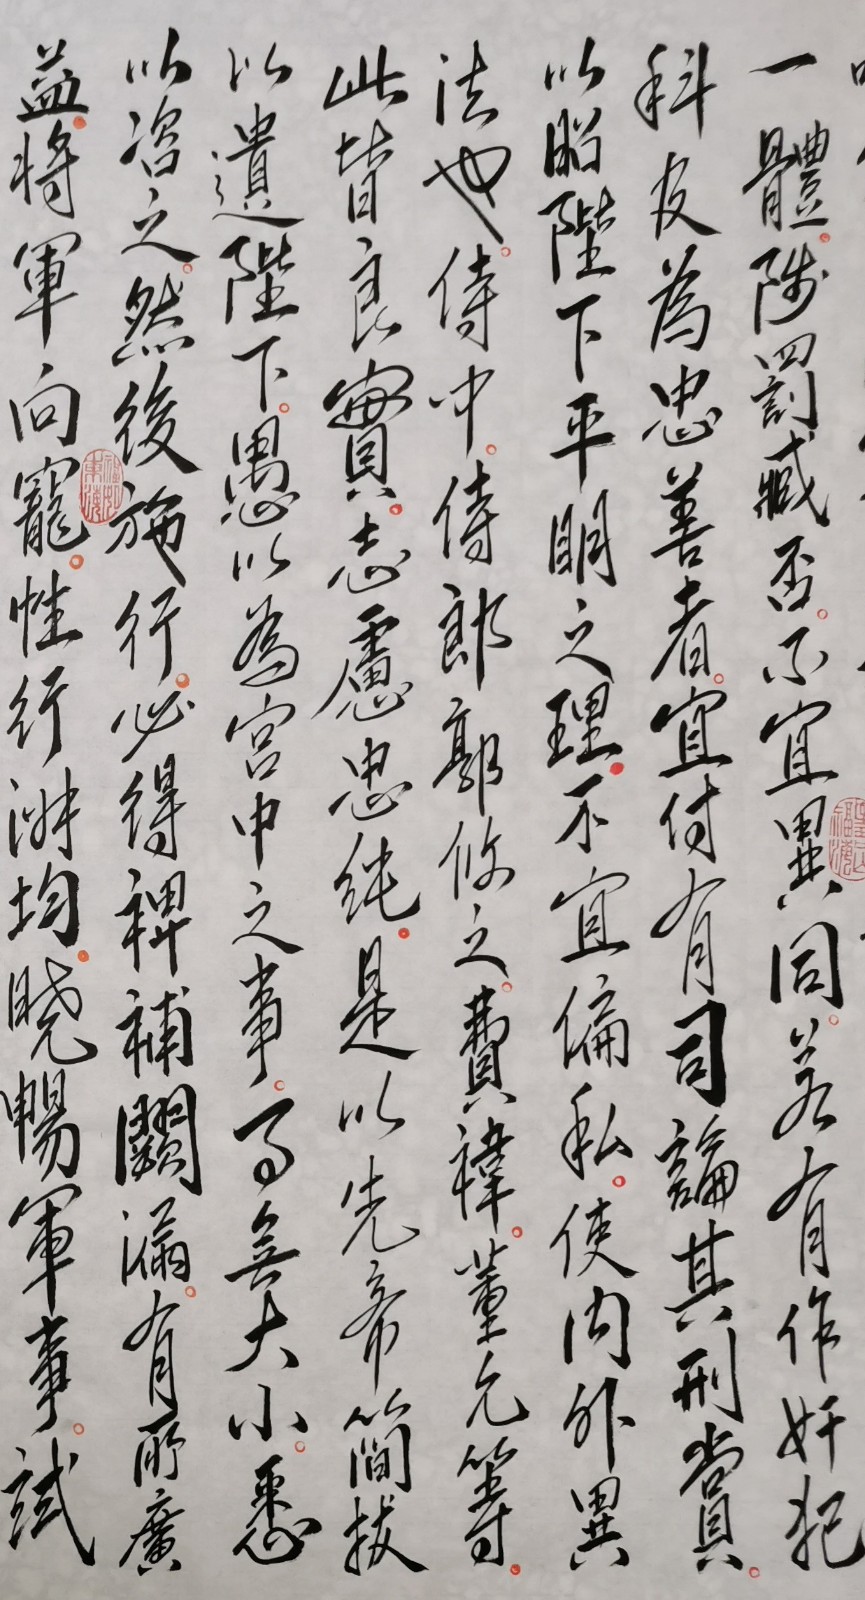 一體。陟罰臧否。不宜異同。若有作奸犯
科及為忠善者。宜付有司論其刑賞。
以昭陛下平明之理。不宜偏私。使內外異
法也。侍中。侍郎郭攸之。費禕。董允等。
此皆良實。志慮忠純。是以先帝簡拔
以遺陛下。愚以為宮中之事。事無大小。悉
以咨之。然後施行。必得裨補闕漏。有所廣
益。將軍向寵。性行淑均。曉暢軍事。試